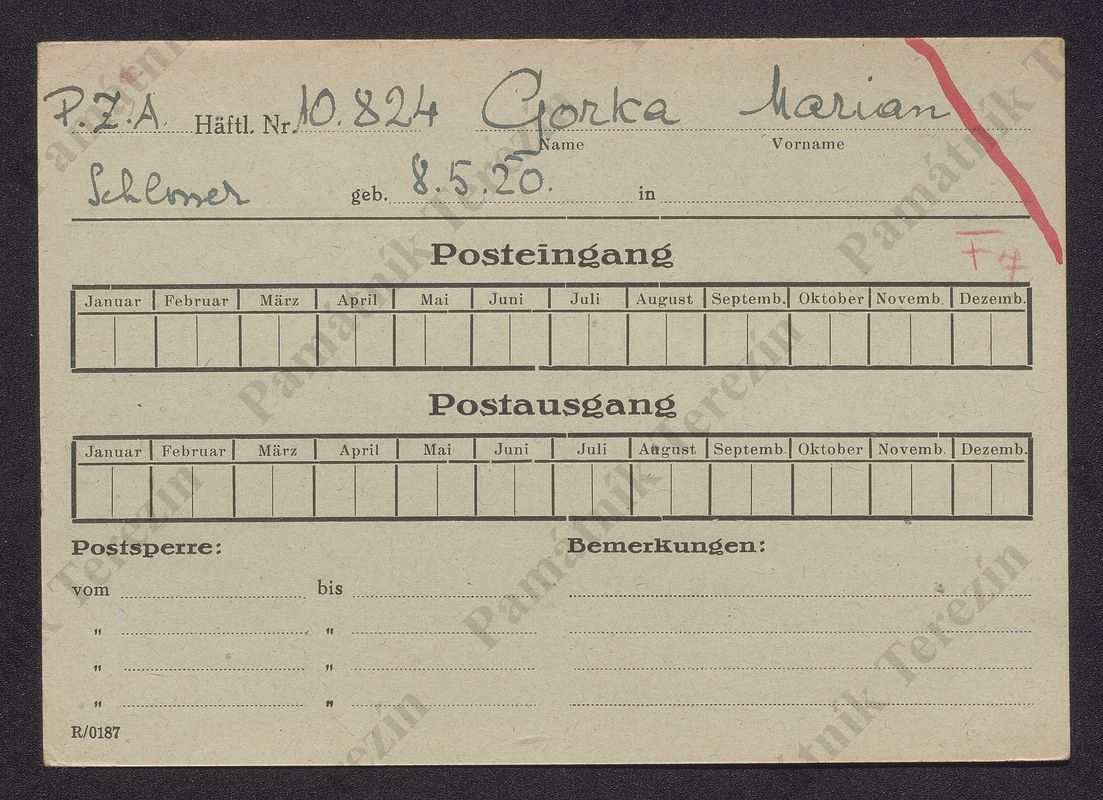 P.Z.A. Häftl. Nr. 10.824 Gorka Marian
Name Vorname
Schlosser geb. 8.5.20. in
F 7
Posteingang
Januar Februar März April Mai Juni Juli August Septemb. Oktober Novemb. Dezemb.
Postausgang
Januar Februar März April Mai Juni Juli August Septemb. Oktober Novemb. Dezemb.
Postsperre: Bemerkungen:
vom bis
" "
" "
" "
R/0187
Památník Terezín